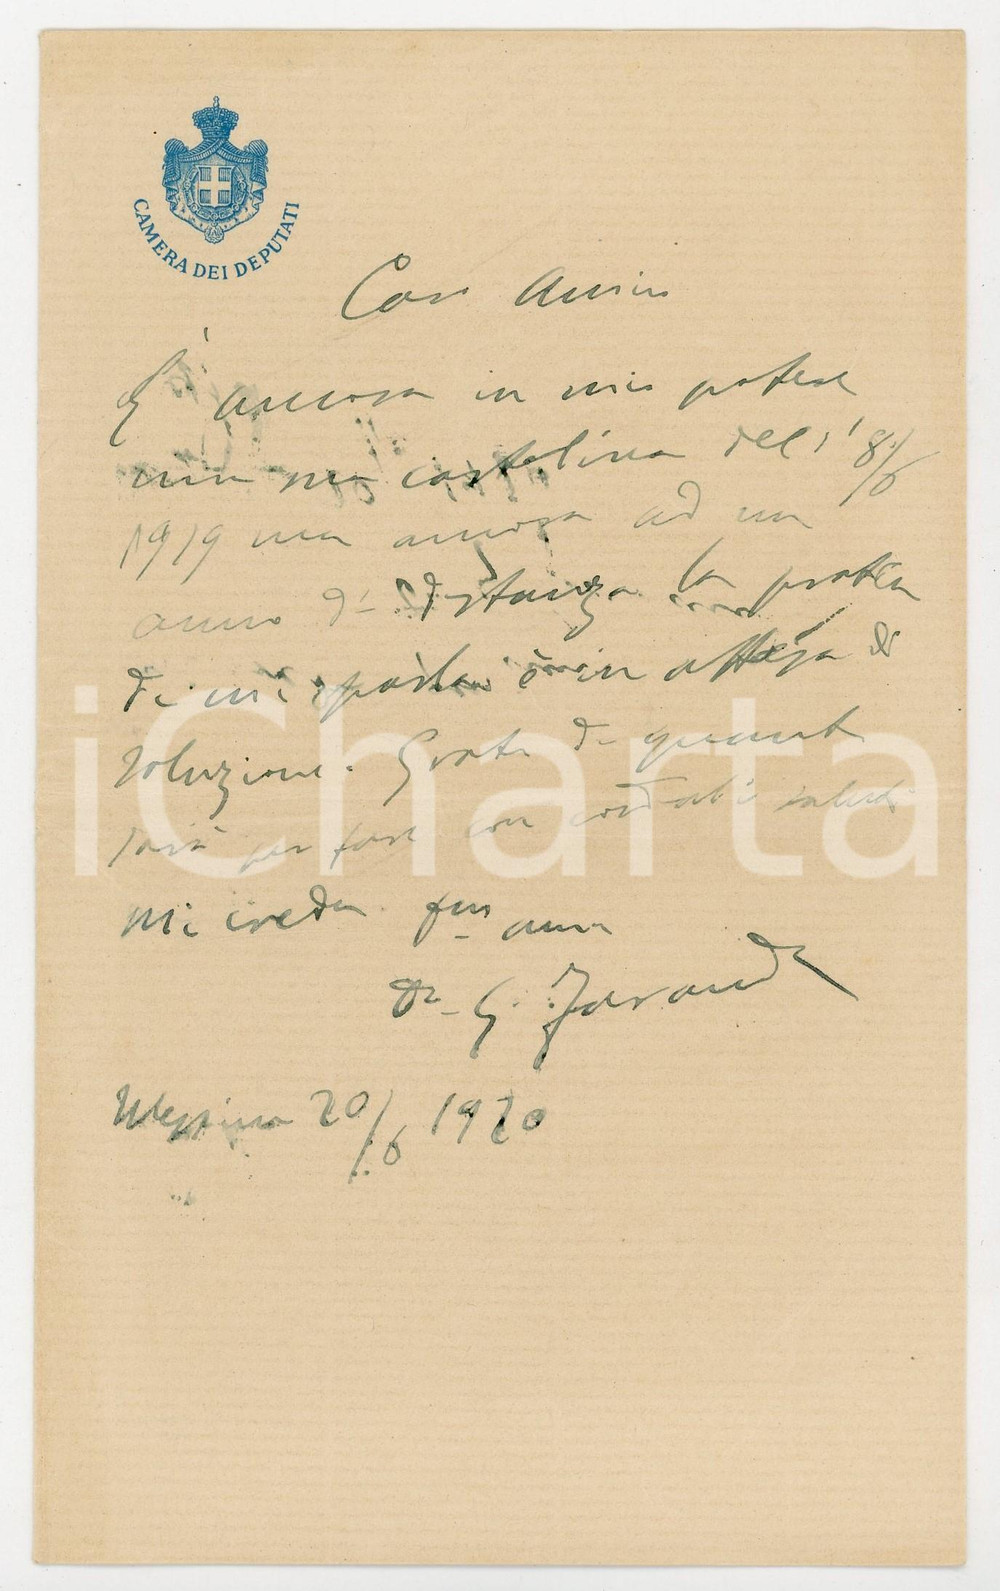 CAMERA DEI DEPUTATI
Caro Amico
È ancora in mio potere
una sua cartolina dell'8/6
1919 ma ancora ad un
anno di distanza la pratica
di cui si parla è in attesa di
soluzione. Grato di quanto
farà per fare con cordiali saluti
mi creda. suo amico
Dr. G.
Messina 20/6 1920
iCharta